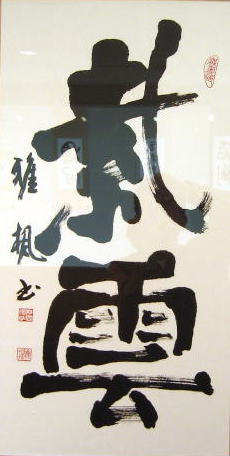 紫雲
雅楓书